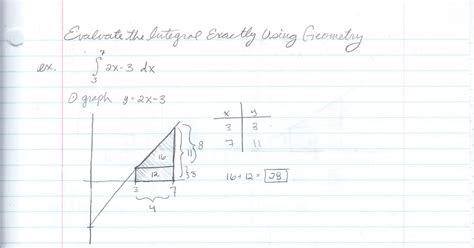 Evaluate the Integral Exactly Using Geometry
ex. ∫₃⁷ 2x-3 dx
① graph y=2x-3
x y
3 3
7 11
16+12= 28
16
12
11
8
3
3 7
4